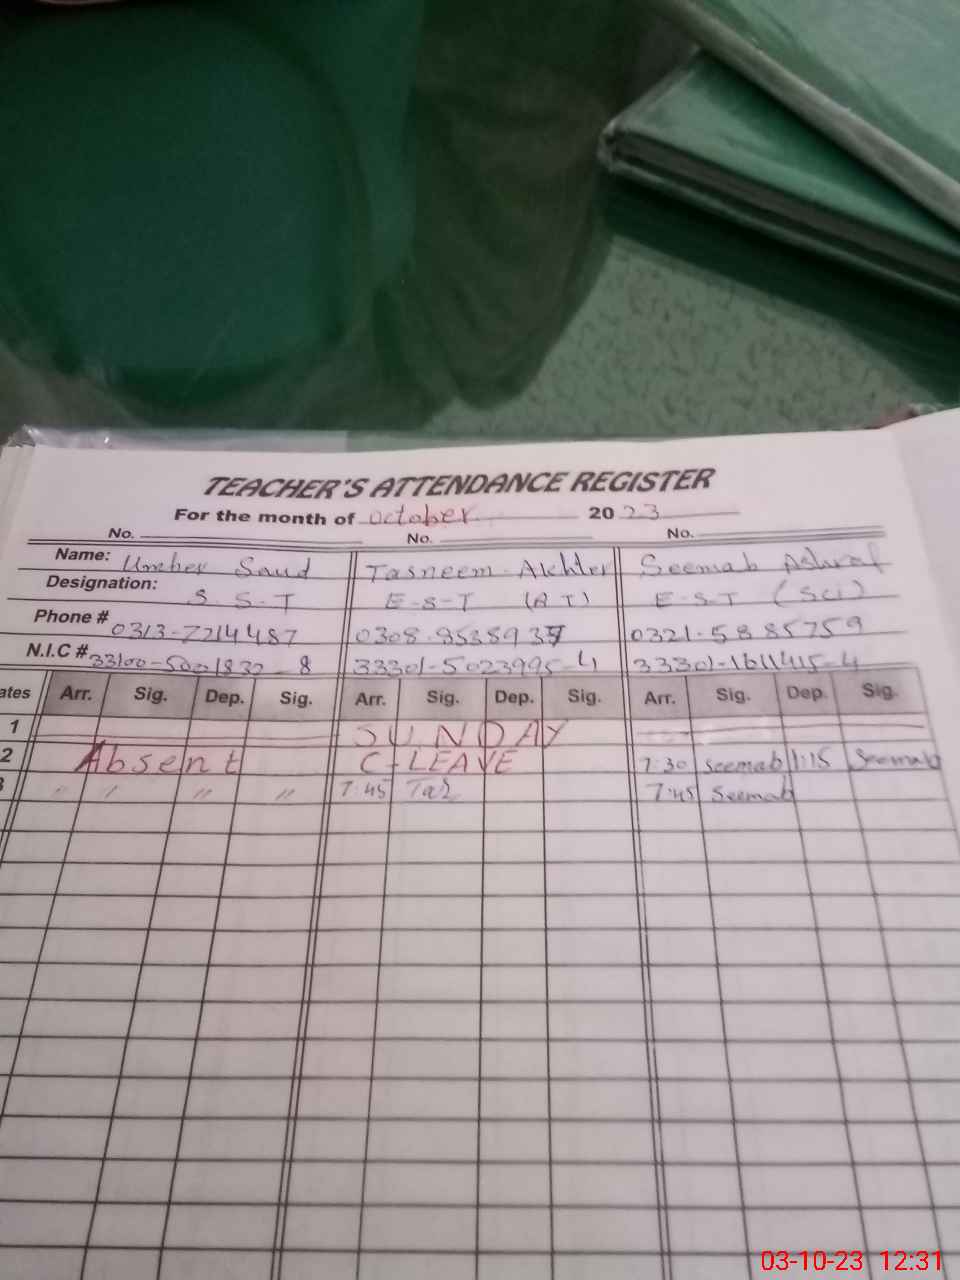 TEACHER'S ATTENDANCE REGISTER
For the month of October 2023
No. No. No.
Name: Umber Saud Tasneem Akhter Seemab Ashraf
Designation: S.S.T E-S-T (AT) E.S.T (Sci)
Phone # 0313-7214487 0308-853593 0321-5885759
N.I.C # 33100-5001832-8 33301-5023995-4 33301-1611415-4
ates Arr. Sig. Dep. Sig. Arr. Sig. Dep. Sig. Arr. Sig. Dep. Sig.
1 SUNDAY
2 Absent C-LEAVE 7:30 Seemab 1:15 Seemab
3 " " " " 7:45 7:45 Seemab
03-10-23 12:31